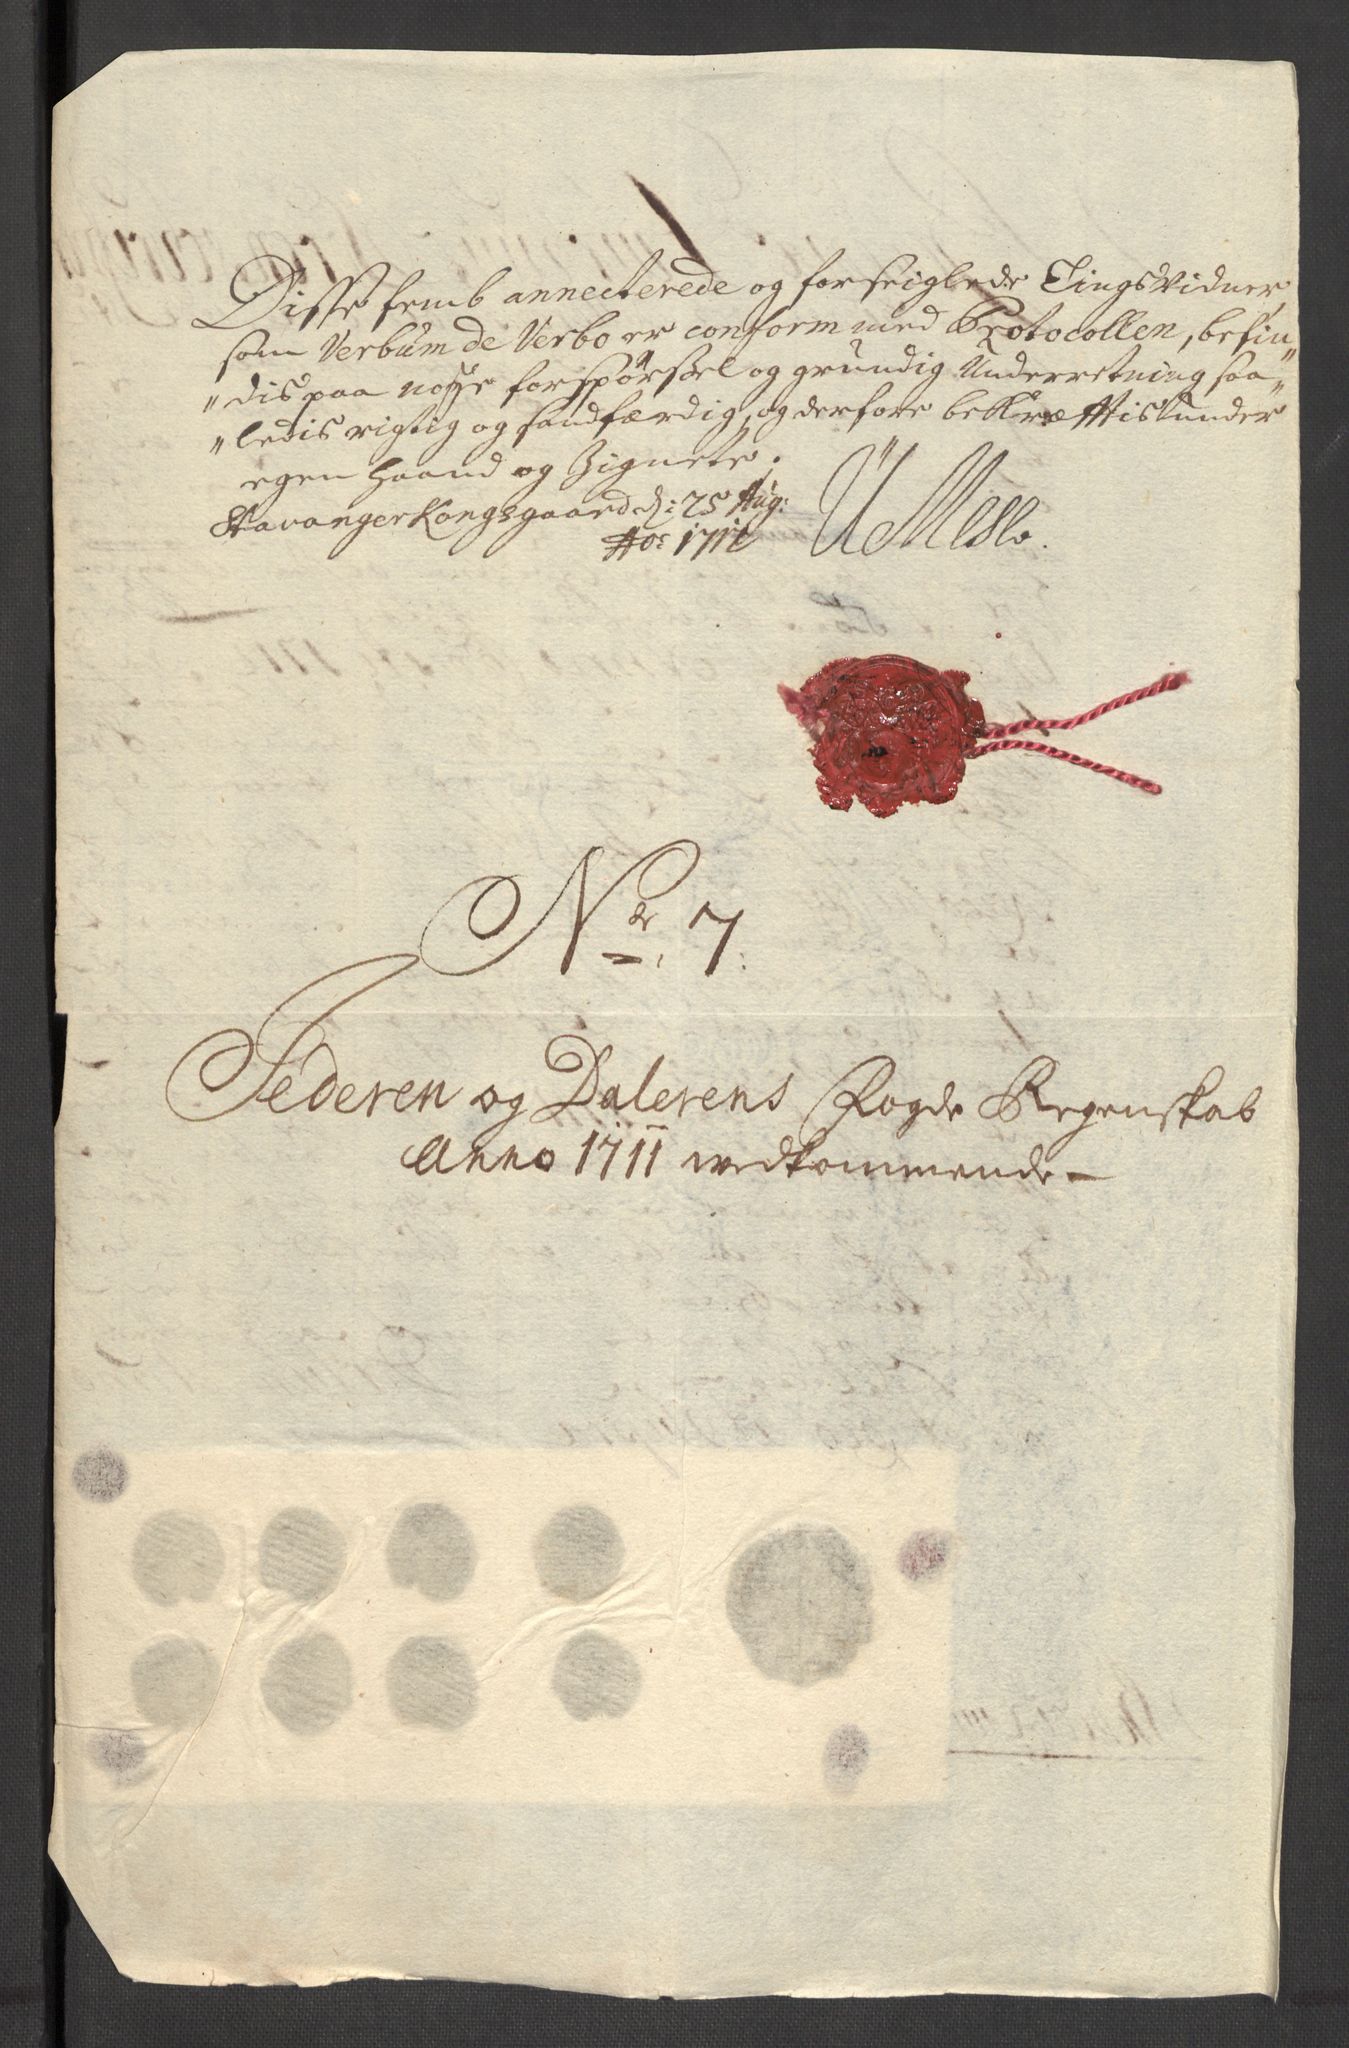 Disse femb annecterede og forseiglede Tingsvidner,
som Verbum de Verbo er conform med Protocollen, befin„
„dis paa nøye forspørssel og grundig Underretning saa„
„ledis rigtig og sandfærdig, og derfore bekræfftis under
egen Haand og Zignete.
Stavanger Kongsgaard d: 25 Aug:
Ao: 1711
No 7.
Jederen og Dalerens Fogde Regenskab
Anno 1711 vedkommende